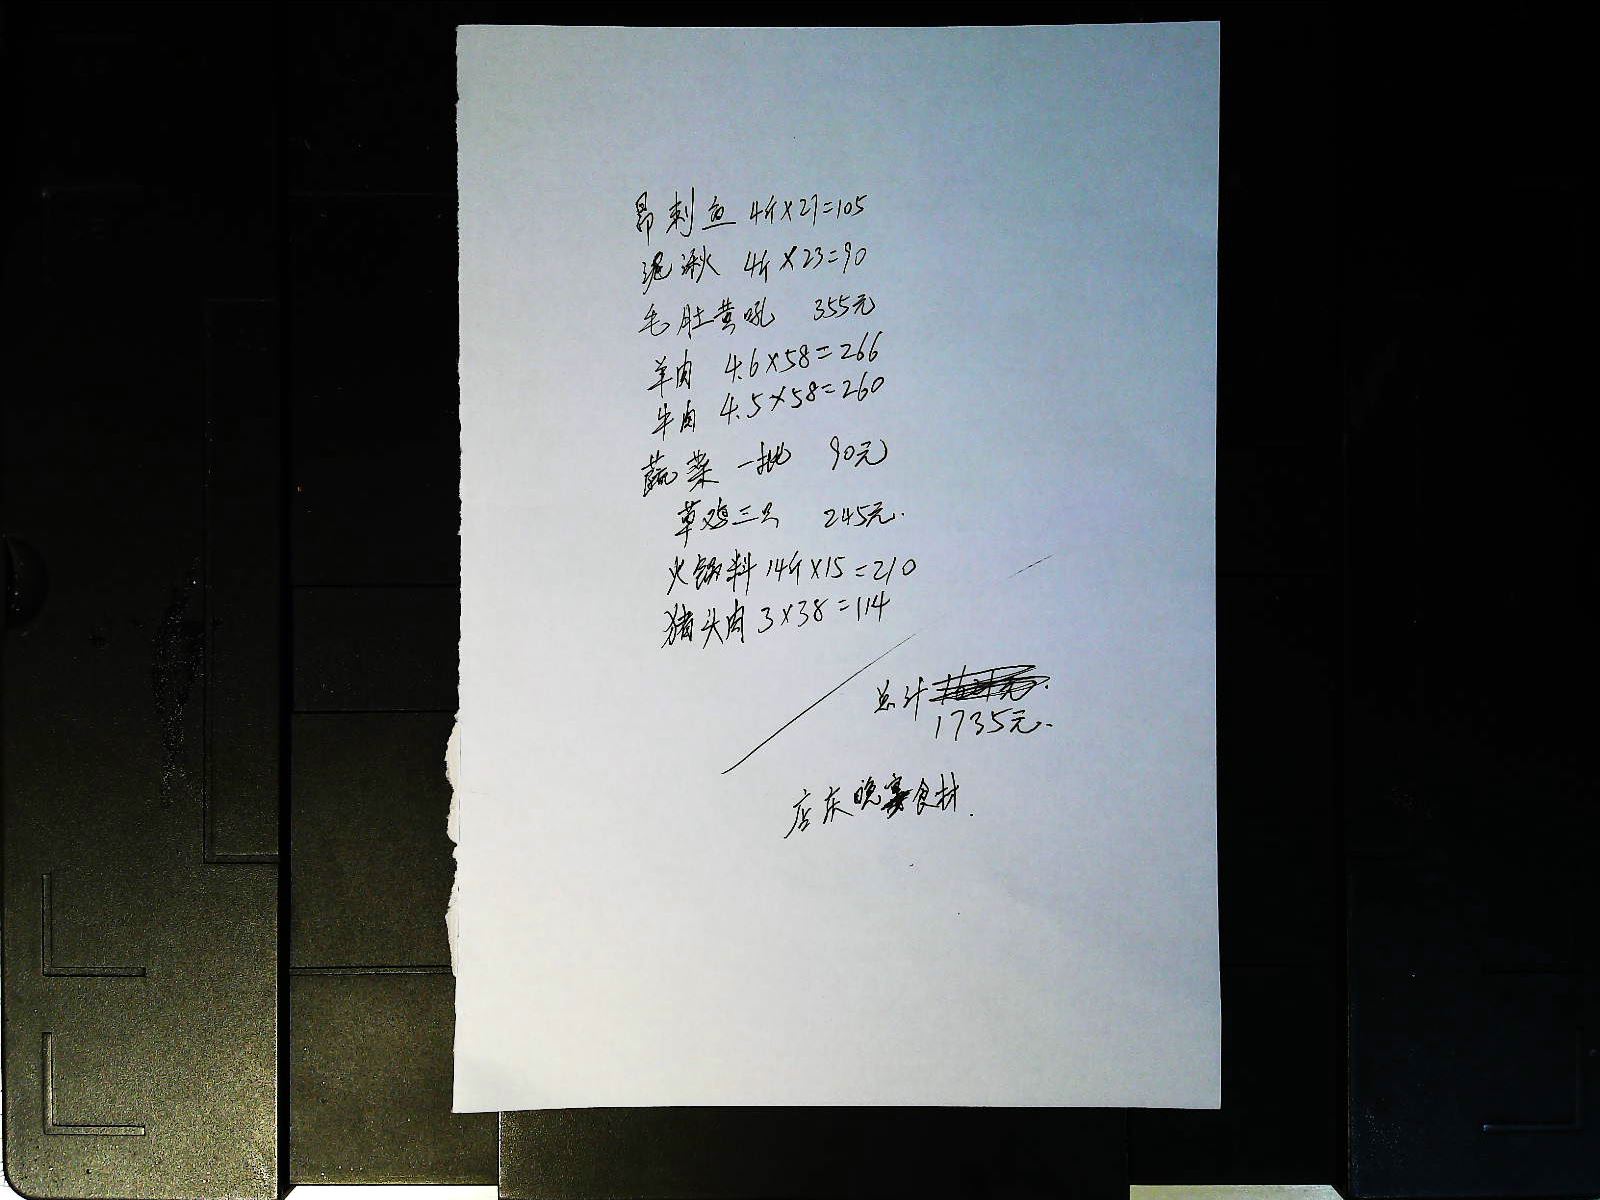 昂刺鱼 4斤×27=105
泥湫 4斤×23=90
毛肚黄吼 355元
羊肉 4.6×58=266
牛肉 4.5×58=260
蔬菜一批 90元
草鸡三只 245元.
火锅料 14斤×15=210
猪头肉 3×38=114
总计
1735元.
店东晚宴食材.